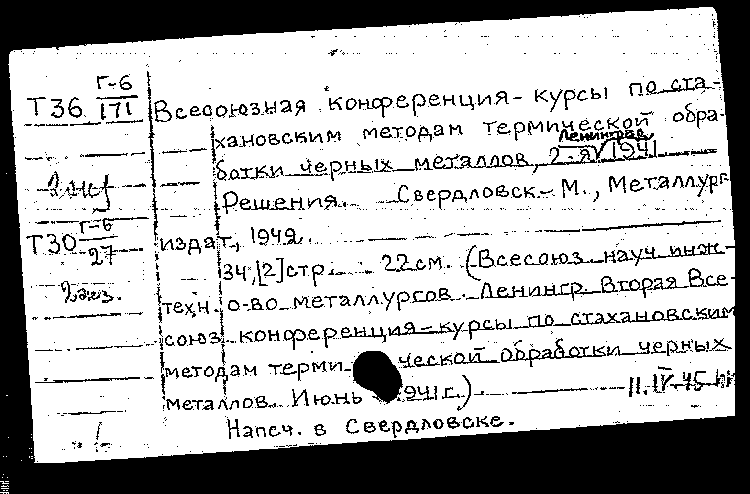 Г-6
Т36 171
Всесоюзная конференция-курсы по ста-
хановским методам термической обра-
Ленинград
ботки черных металлов, 2-я 1941
Решения. Свердловск-М., Металлург
2 экз
Г-6
Т30 27
издат, 1942.
34,[2]стр. 22см. (Всесоюз. науч инж-
2 экз.
техн. о-во металлургов. Ленингр. Вторая Все-
союз. конференция-курсы по стахановским
методам терми ческой обработки черных
металлов. Июнь 1941 г.)
11.IV.45
Напеч. в Свердловске.